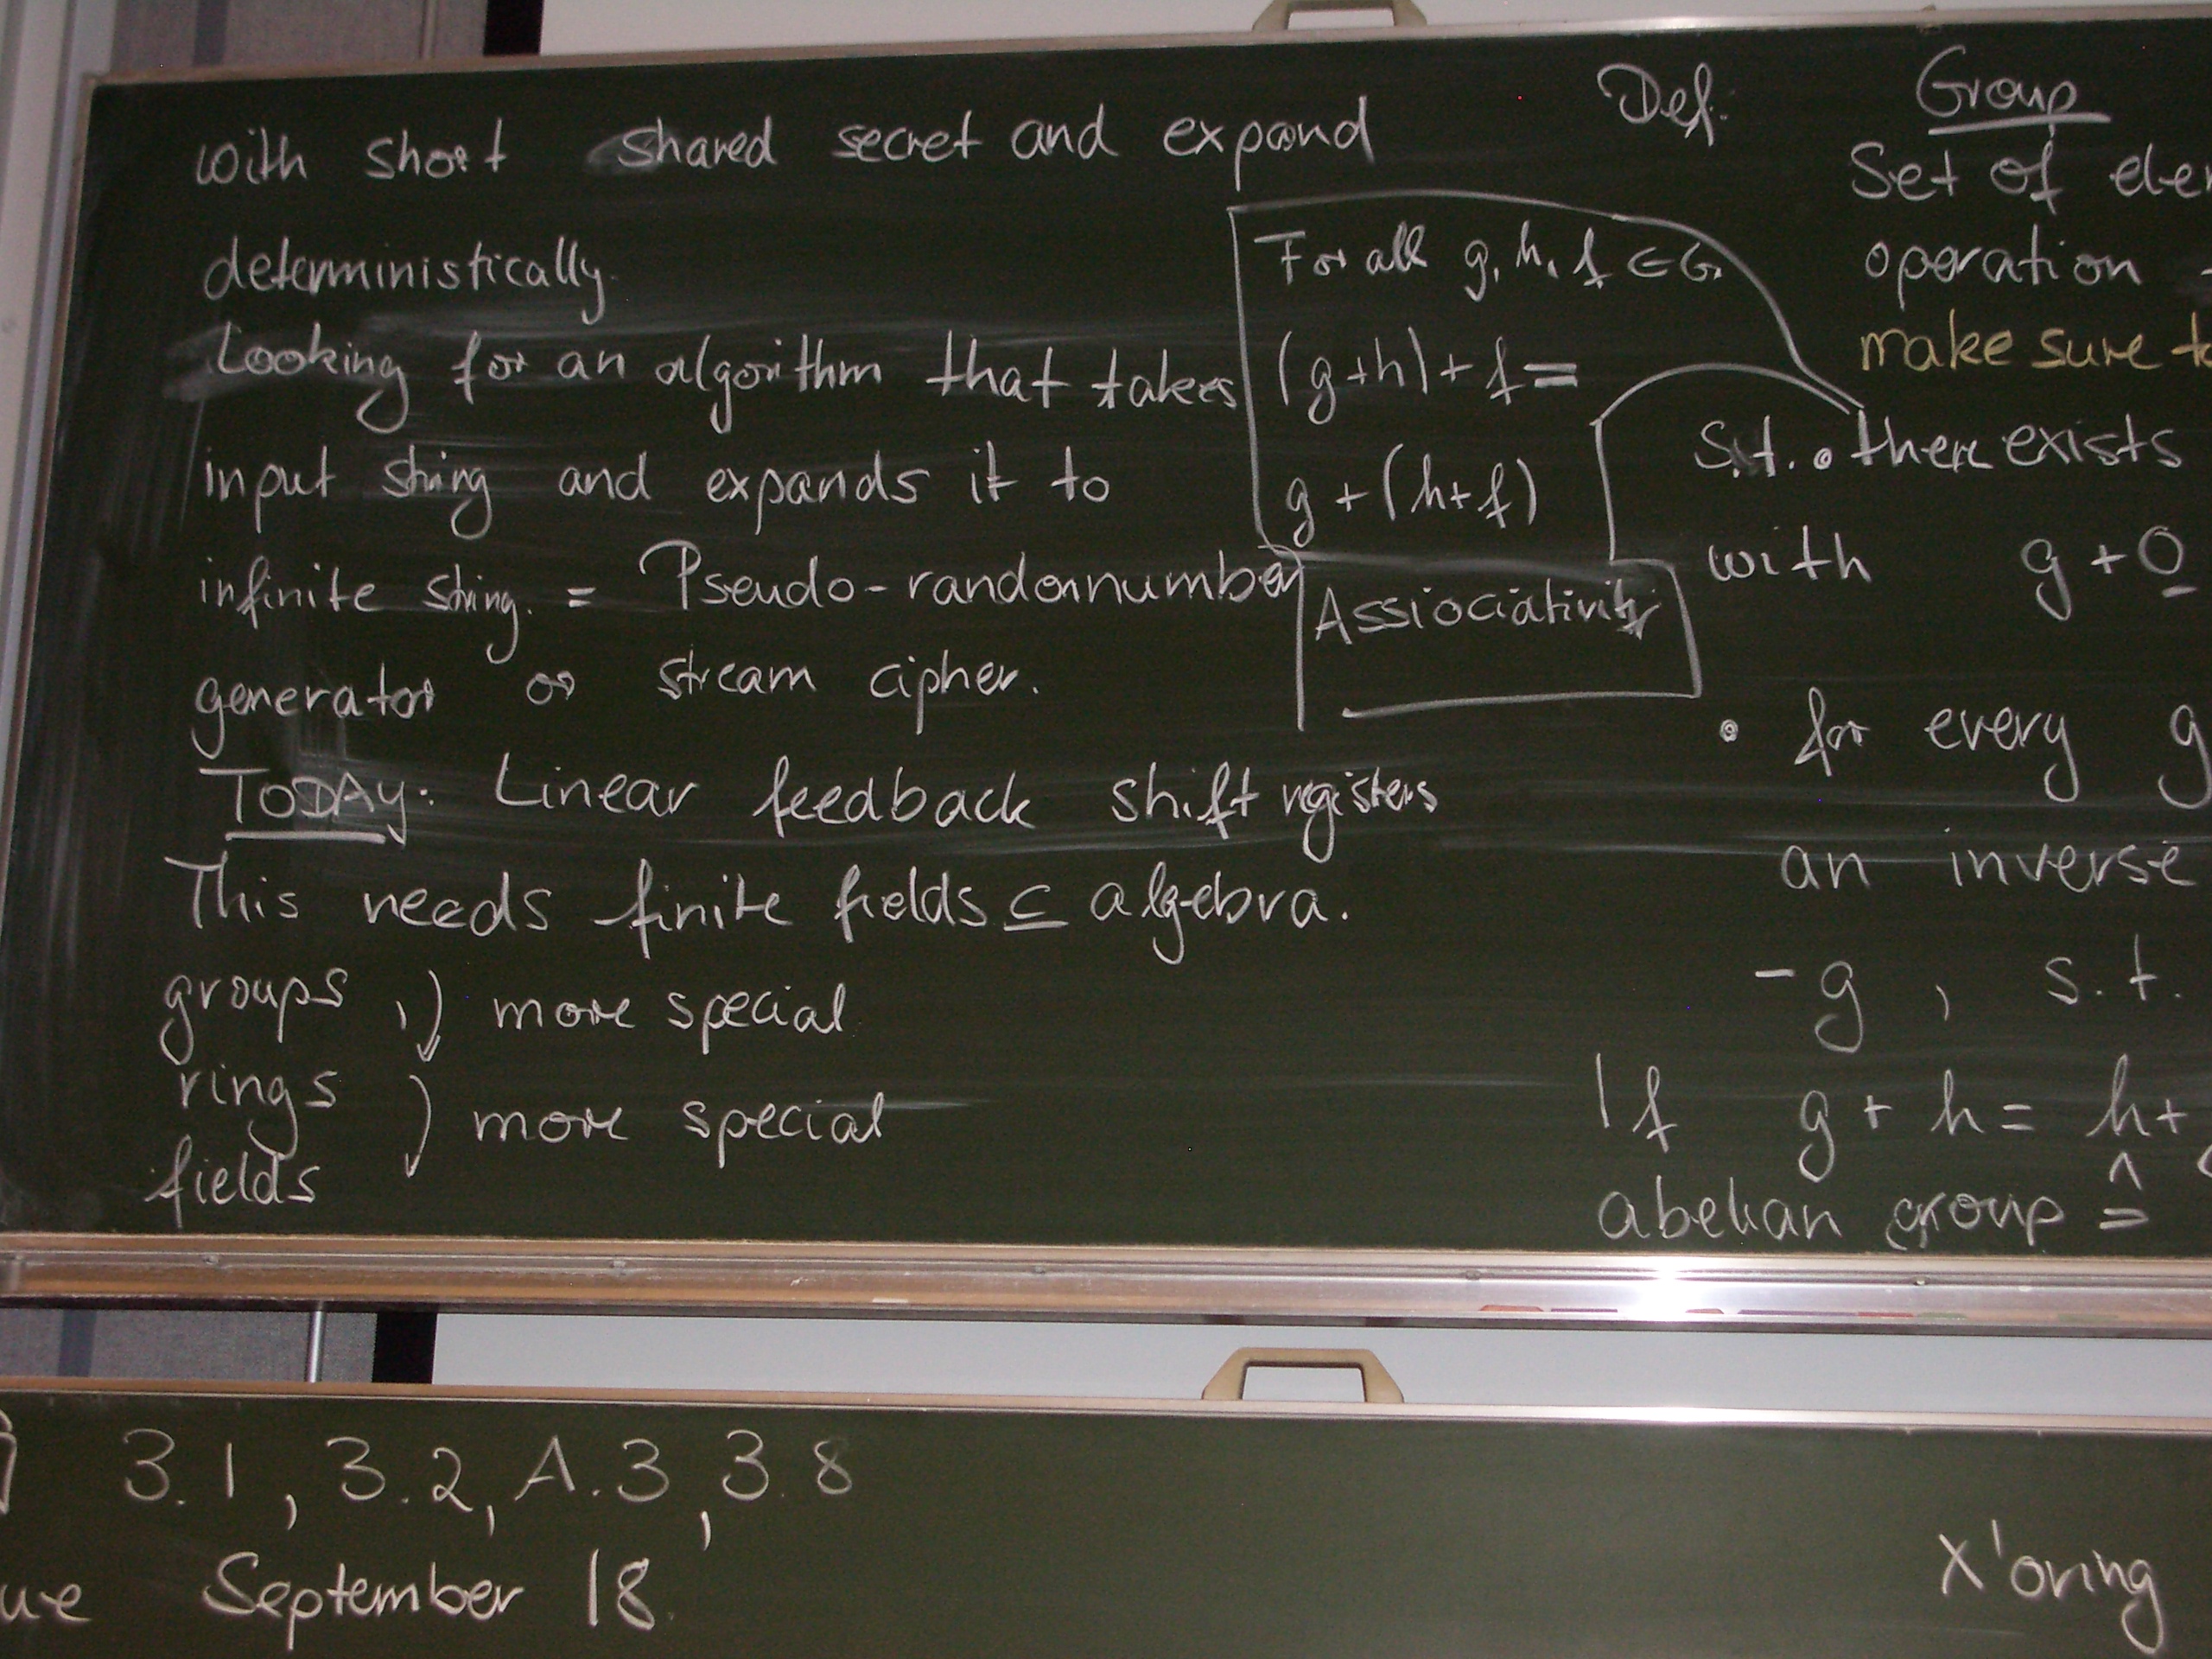 with short shared secret and expand
deterministically.
Looking for an algorithm that takes
input string and expands it to
infinite string. = Pseudo-randomnumber
generator or stream cipher.
TODAY: Linear feedback shift registers
This needs finite fields ⊆ algebra.
groups , ) more special
rings ) more special
fields
For all g, h, f ∈ G
(g+h)+f=
g+(h+f)
Assiociativity
Def. Group
Set of
operation
make sure
s.t. • there exists
with g+0
• for every g
an inverse
-g , s.t.
If g+h=h+
abelian group ≙
3.1, 3.2, A.3, 3.8
September 18.
X'oring